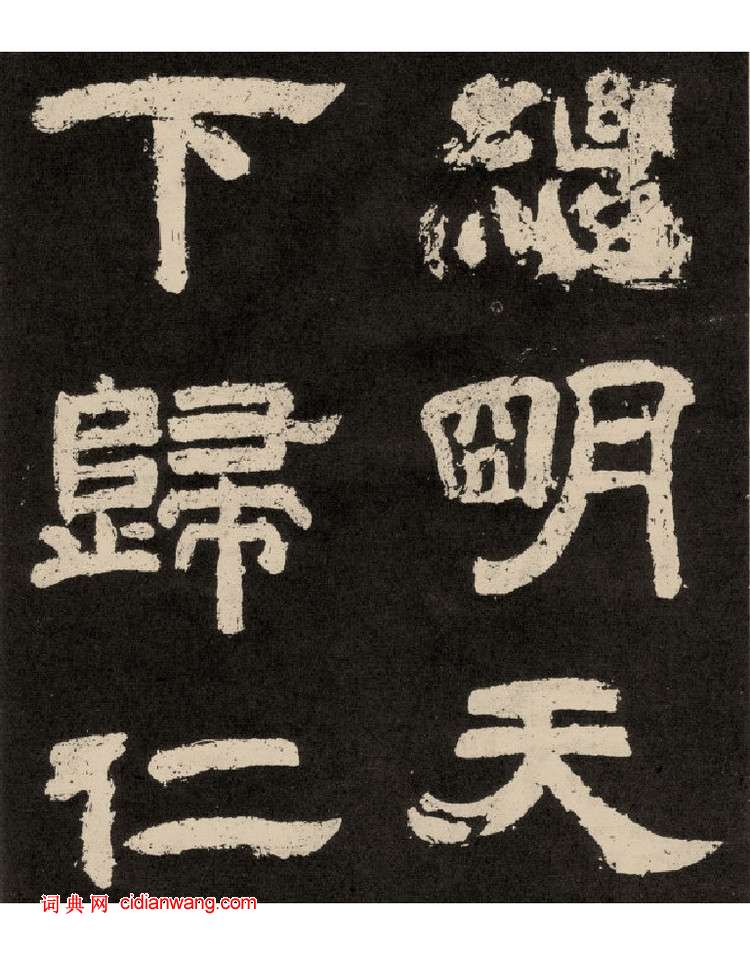 繼明天
下歸仁
词典网 cidianwang.com